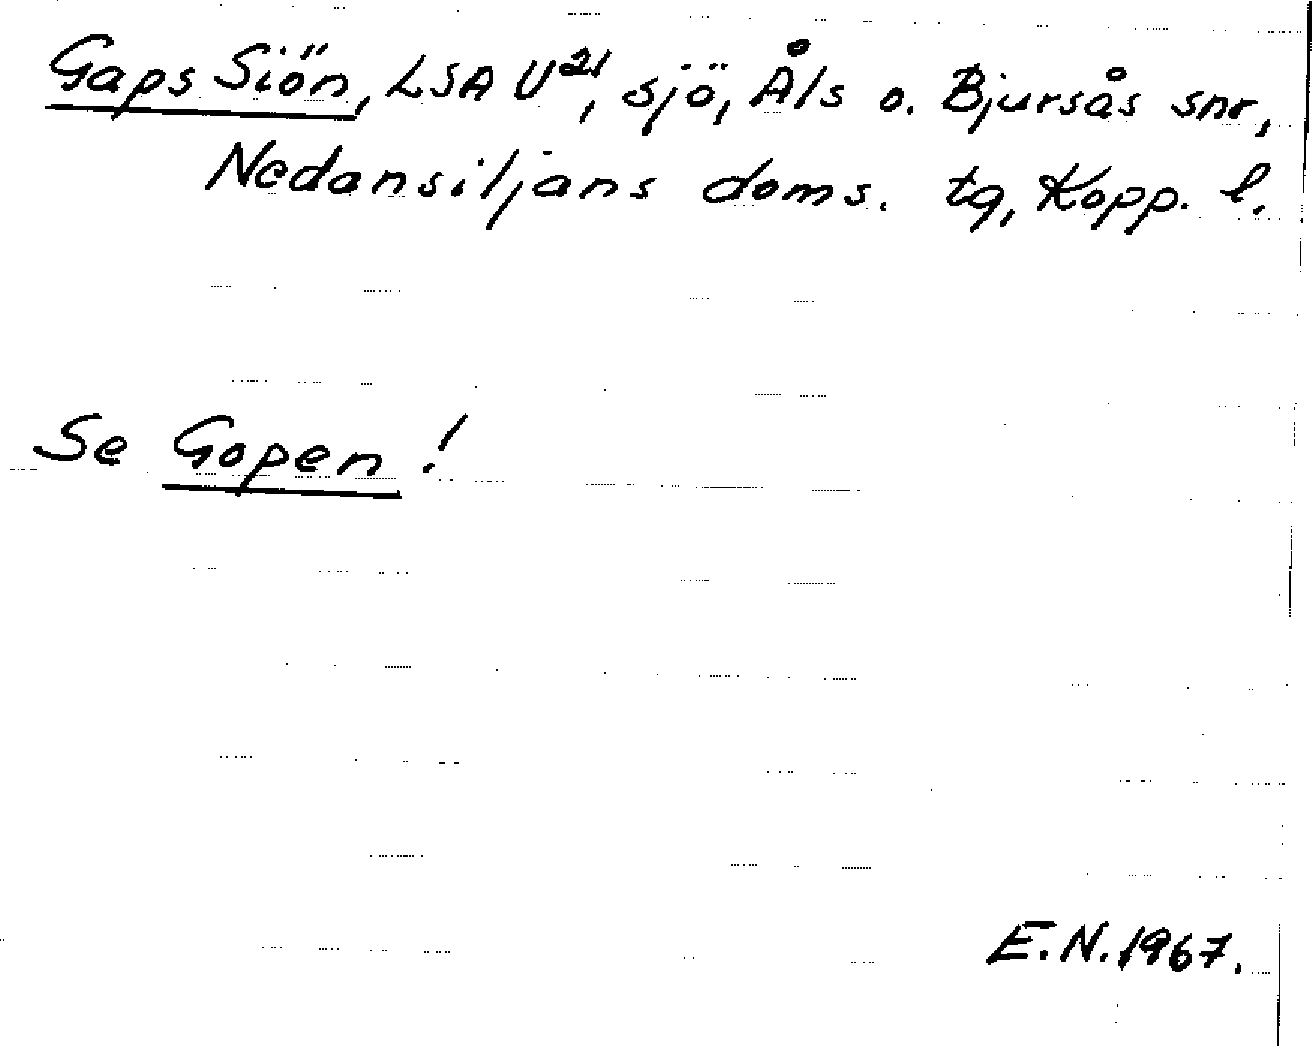 Gaps Siön, LSA U²¹, sjö, Åls o. Bjursås snr,
Nedansiljans doms. tg, Kopp. l.
Se Gopen!
E.N. 1967.